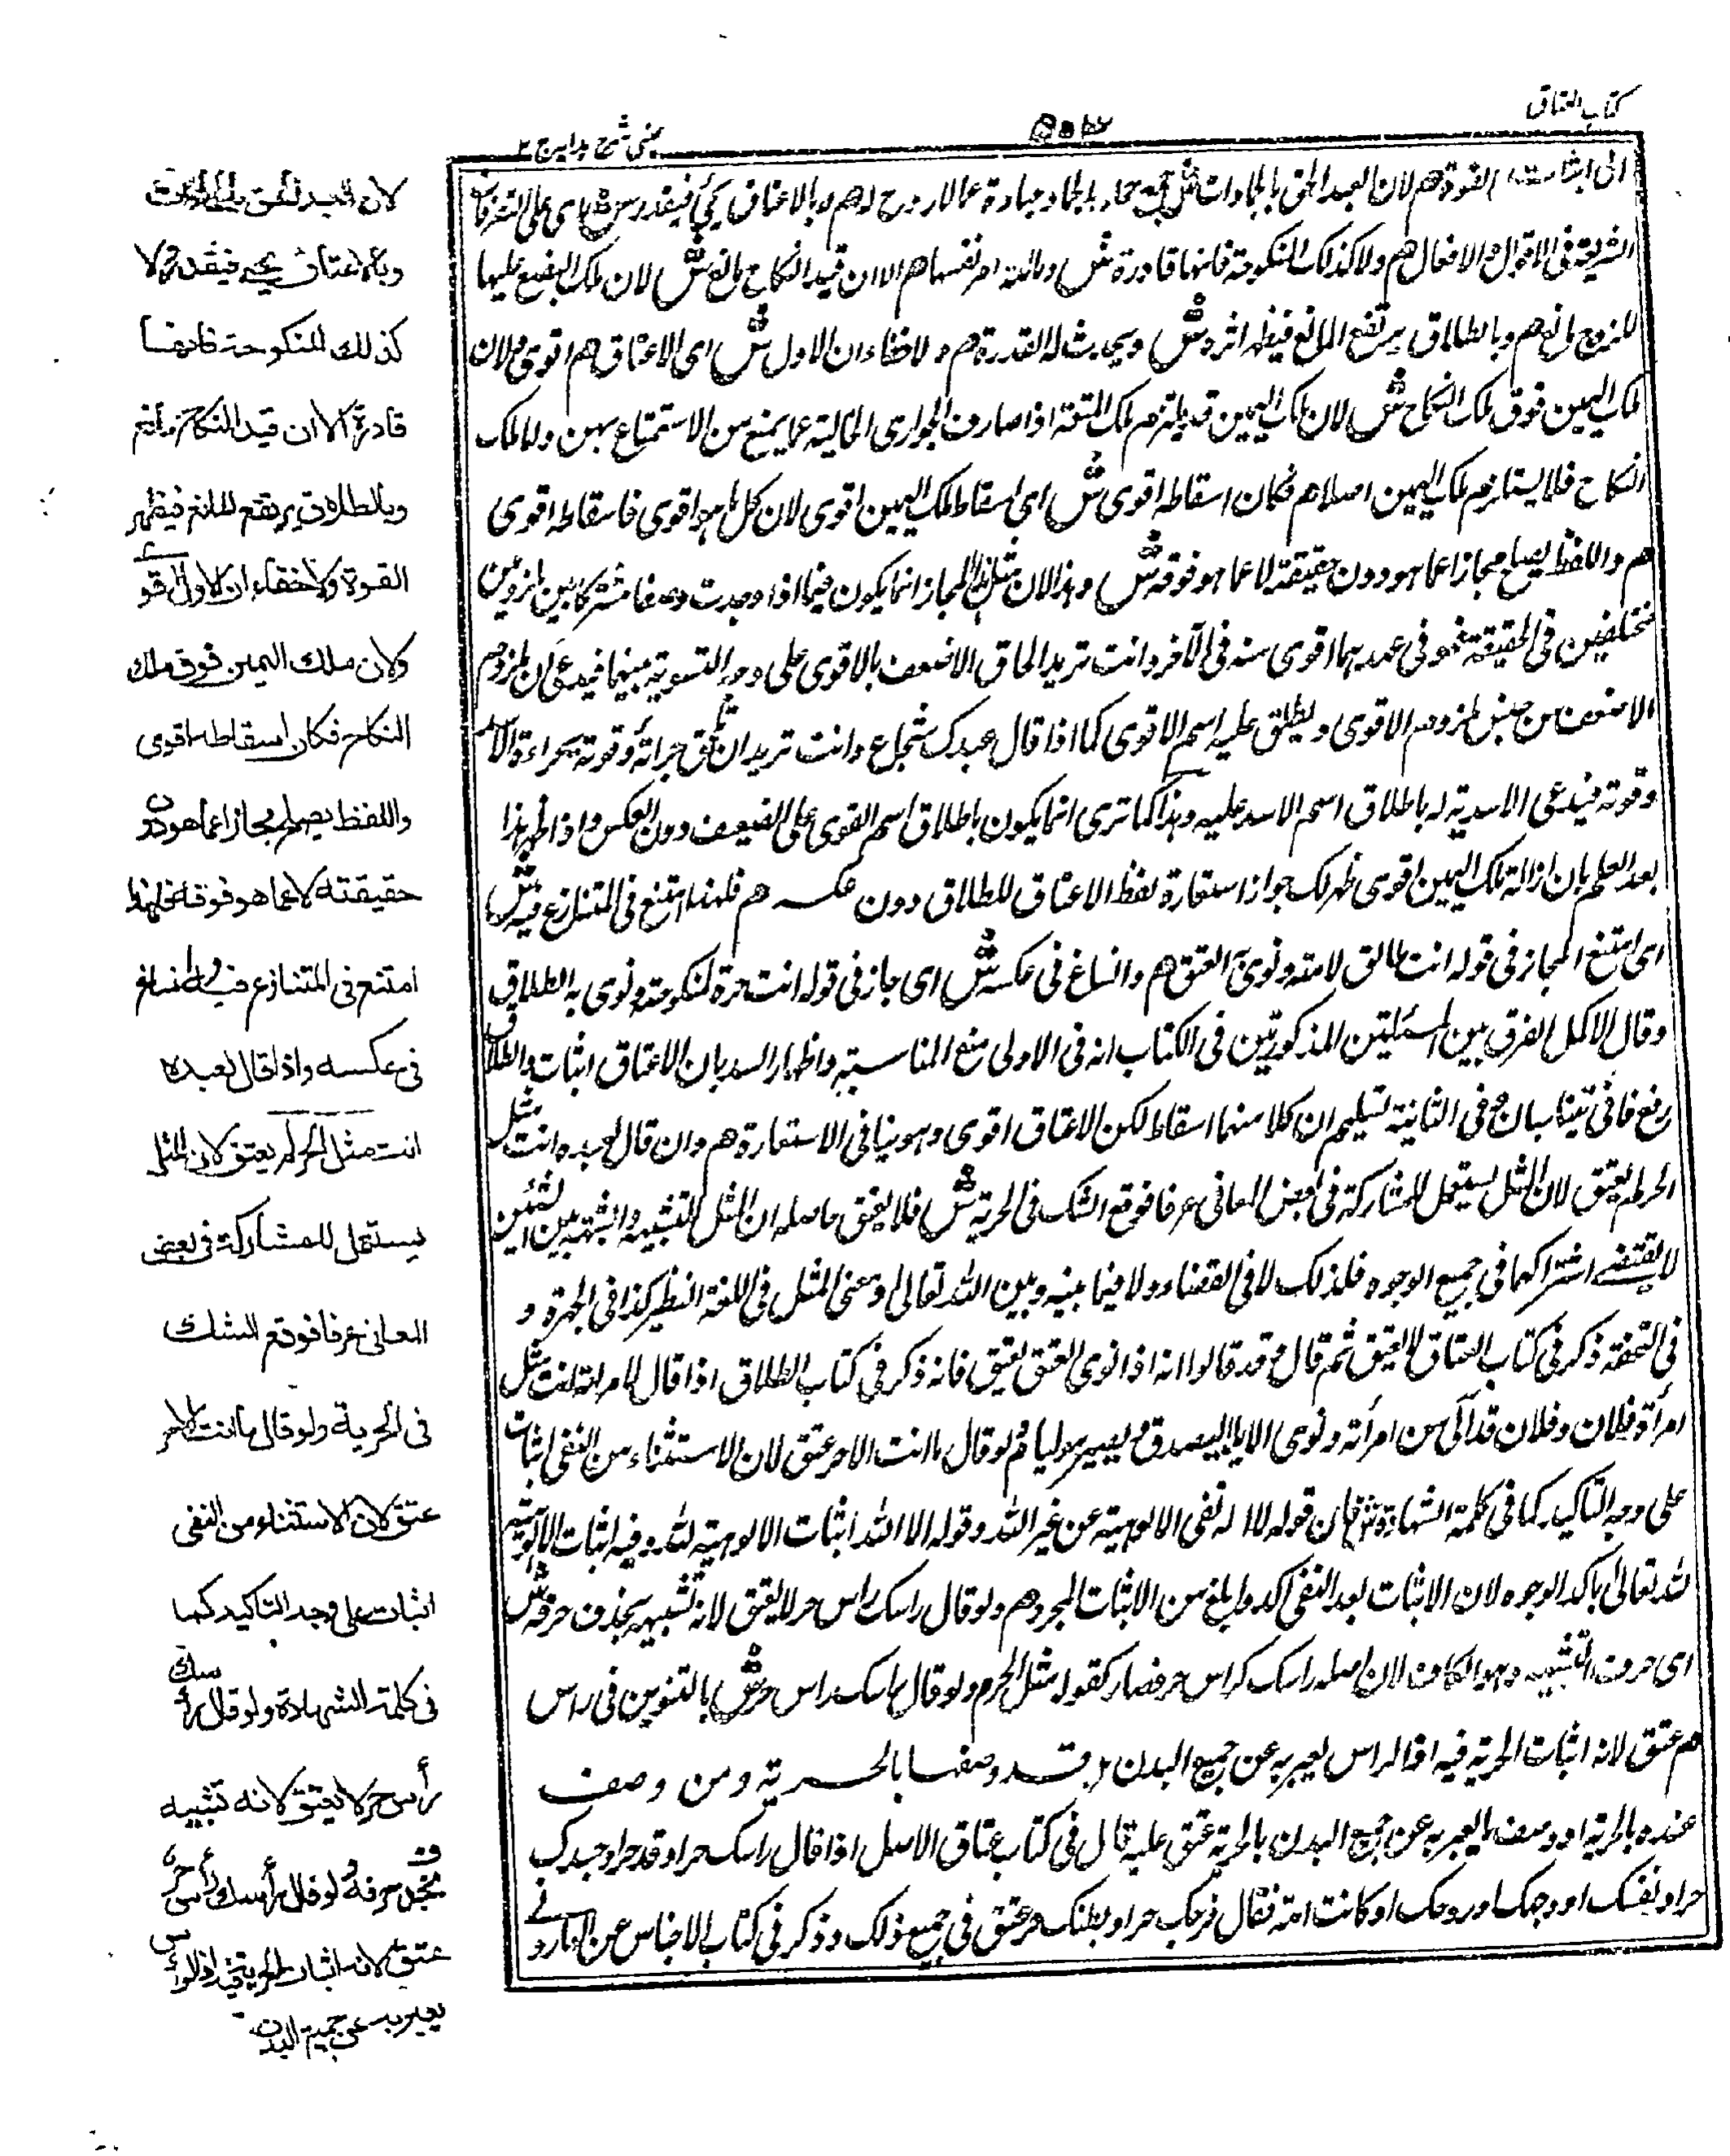 كتاب العتاق
عينى شرح هداية ج ٢
الى اثبات القوة هم لان العبد الحق بالجمادات ش جمع جماد الجماد عبارة عما لا روح له هم وبالاعتاق يحيى فيقدر ش اى على التصرفات
الشرعية فى الاقوال والافعال هم ولا كذلك المنكوحة فانها قادرة ش نفسها هم الا ان قيد النكاح مانع ش لان ملك البضع عليها
للزوج مانع هم وبالطلاق يرتفع المانع فيظهر اثره ش ويحدث له القدرة هم ولا خفاء ان الاول ش اى الاعتاق هم اقوى ولان
ملك اليمين فوق ملك النكاح ش لان ملك اليمين قد يلتزم ملك المتعة اذا صارف الجوارى المالية عما يمنع من الاستمتاع بهن واما ملك
النكاح فلا يستلزم ملك اليمين اصلا هم فكان اسقاطه اقوى ش اى اسقاط ملك اليمين اقوى لان كل ما هو اقوى فاسقاطه اقوى
هم واللفظ يصلح مجازا عما هو دون حقيقته لا عما هو فوقه ش وهذا لان مثل هذا المجاز انما يكون فيما اذا وجدت وصفا مشتركا بين ملزومين
مختلفين فى الحقيقة هو فى احدهما اقوى منه فى الآخر وانت تريد الحاق الاضعف بالاقوى على وجه التسوية بينهما فيدعى ان ملزوم
الاضعف من جنس ملزوم الاقوى ويطلق عليه اسم الاقوى كما اذا قال عبدك شجاع وانت تريد ان تلحق جرأته وقوته بجراءة الاسد
وقوته فيدعى الاسدية له باطلاق اسم الاسد عليه وهذا كما ترى انما يكون باطلاق اسم القوى على الضعيف دون العكس واذا ظهر هذا
بعد العلم بان ازالة ملك اليمين اقوى ظهر لك جواز استعارة لفظ الاعتاق للطلاق دون عكسه هم فلهذا امتنع فى المتنازع فيه ش
اى امتنع المجاز فى قوله انت طالق لامته ونوى به العتق هم وانساغ فى عكسه ش اى جاز فى قوله انت حرة لمنكوحته ونوى به الطلاق
وقال الاكمل الفرق بين المسئلتين المذكورتين فى الكتاب انه فى الاولى منع المناسبة واظهار السند بان الاعتاق اثبات والطلاق
رفع فانى تتناسبان وفى الثانية تسليم ان كلا منهما اسقاط لكن الاعتاق اقوى وهو ينافى الاستعارة هم وان قال لعبده انت مثل
الحر لم يعتق لان المثل يستعمل للمشاركة فى بعض المعانى عرفا فوقع الشك فى الحرية ش فلا يعتق حاصله ان المثل للتشبيه والتشبيه بين الشيئين
لا يقتضى اشتراكهما فى جميع الوجوه فلذلك لا فى القضاء ولا فيما بينه وبين الله تعالى ومعنى المثل فى اللغة النظير كذا فى الجمهرة و
فى التحفة ذكر فى كتاب العتاق لا يعتق ثم قال وقد قالوا انه اذا نوى العتق يعتق فانه ذكر فى كتاب الطلاق اذا قال لامراته انت مثل
امرأة فلان وفلان قد آلى من امرأته ونوى الايلاء يصدق ويصير موليا هم ولو قال ما انت الا حر عتق لان الاستثناء من النفى اثبات
على وجه التاكيد كما فى كلمة الشهادة ش فان قوله لا اله نفى الالوهية عن غير الله وقوله الا الله اثبات الالوهية لله وفيه اثبات الالوهية
لله تعالى باكد الوجوه لان الاثبات بعد النفى اكد وابلغ من الاثبات المجرد هم ولو قال راسك راس حر لا يعتق لانه تشبيه بحذف حرفه ش
اى حرف التشبيه وهو الكاف لان اصله راسك كراس حر فصار كقوله مثل الحر هم ولو قال راسك راس حر ش بالتنوين فى راس
هم عتق لانه اثبات الحرية فيه اذ الراس يعبر به عن جميع البدن ش قد وصفها بالحرية ومن وصف
عنده بالحرية او وصف ما يعبر به عن جميع البدن بالحرية عتق عليه قال فى كتاب عتاق الاصل اذا قال راسك حر او جسدك
حر او نفسك او وجهك او روحك او كانت امة فقال فرجك حر او بطنك حر عتق فى جميع ذلك وذكر فى كتاب الاجناس عن الهارونى
لان العبد الحق بالجمادات
وبالاعتاق يحيى فيقدر ولا
كذلك المنكوحة فانها
قادرة الا ان قيد النكاح مانع
وبالطلاق يرتفع المانع فيظهر
القوة ولا خفاء ان الاول اقوى
ولان ملك اليمين فوق ملك
النكاح فكان اسقاطه اقوى
واللفظ يصلح مجازا عما هو دون
حقيقته لا عما هو فوقه فلهذا
امتنع فى المتنازع فيه وانساغ
فى عكسه واذا قال لعبده
انت مثل الحر لم يعتق لان المثل
يستعمل للمشاركة فى بعض
المعانى عرفا فوقع الشك
فى الحرية ولو قال ما انت الا حر
عتق لان الاستثناء من النفى
اثبات على وجه التاكيد كما
فى كلمة الشهادة ولو قال رأسك
رأس حر لا يعتق لانه تشبيه
بحذف حرفه ولو قال رأسك رأس حر
عتق لانه اثبات الحرية فيه اذ الرأس
يعبر به عن جميع البدن